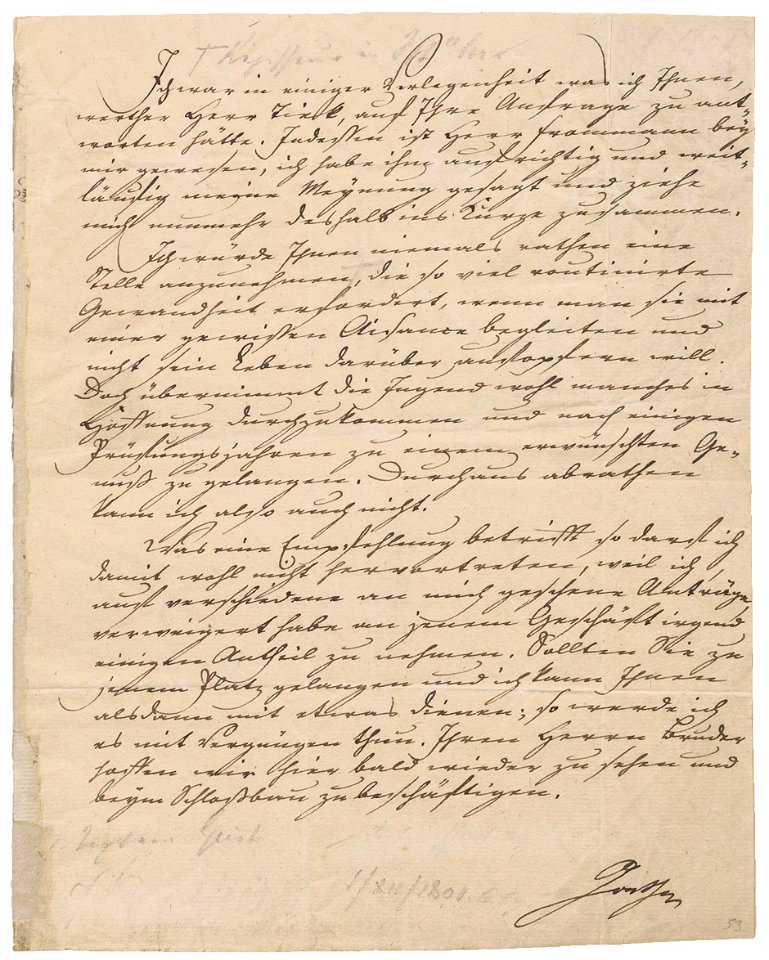 Ich war in einiger Verlegenheit was ich Ihnen,
werther Herr Tieck, auf Ihre Anfrage zu ant-
worten hätte. Indessen ist Herr Frommann bey
mir gewesen, ich habe ihm aufrichtig und weit-
läufig meine Meynung gesagt und ziehe
mich nunmehr deshalb ins Kurze zusammen.
Ich würde Ihnen niemals rathen eine
Stelle anzunehmen, die so viel routinirte
Gewandheit erfordert, wenn man sie mit
einer gewissen Aisance begleiten und
nicht sein Leben darüber aufopfern will.
Doch übernimmt die Jugend wohl manches in
Hoffnung durchzukommen und nach einigen
Prüfungsjahren zu einem erwünschten Ge-
nuß zu gelangen. Durchaus abrathen
kann ich also auch nicht.
Was eine Empfehlung betrifft so darf ich
damit wohl nicht hervortreten, weil ich,
auf verschiedene an mich geschene Anträge,
verweigert habe an jenem Geschäft irgend
einigen Antheil zu nehmen. Sollten Sie zu
jenem Platz gelangen und ich kann Ihnen
alsdann mit etwas dienen; so werde ich
es mit Vergnügen thun. Ihren Herrn Bruder
hoffen wir hier bald wieder zu sehen und
beym Schloßbau zu beschäftigen.
Goethe
/XII/1801.
53